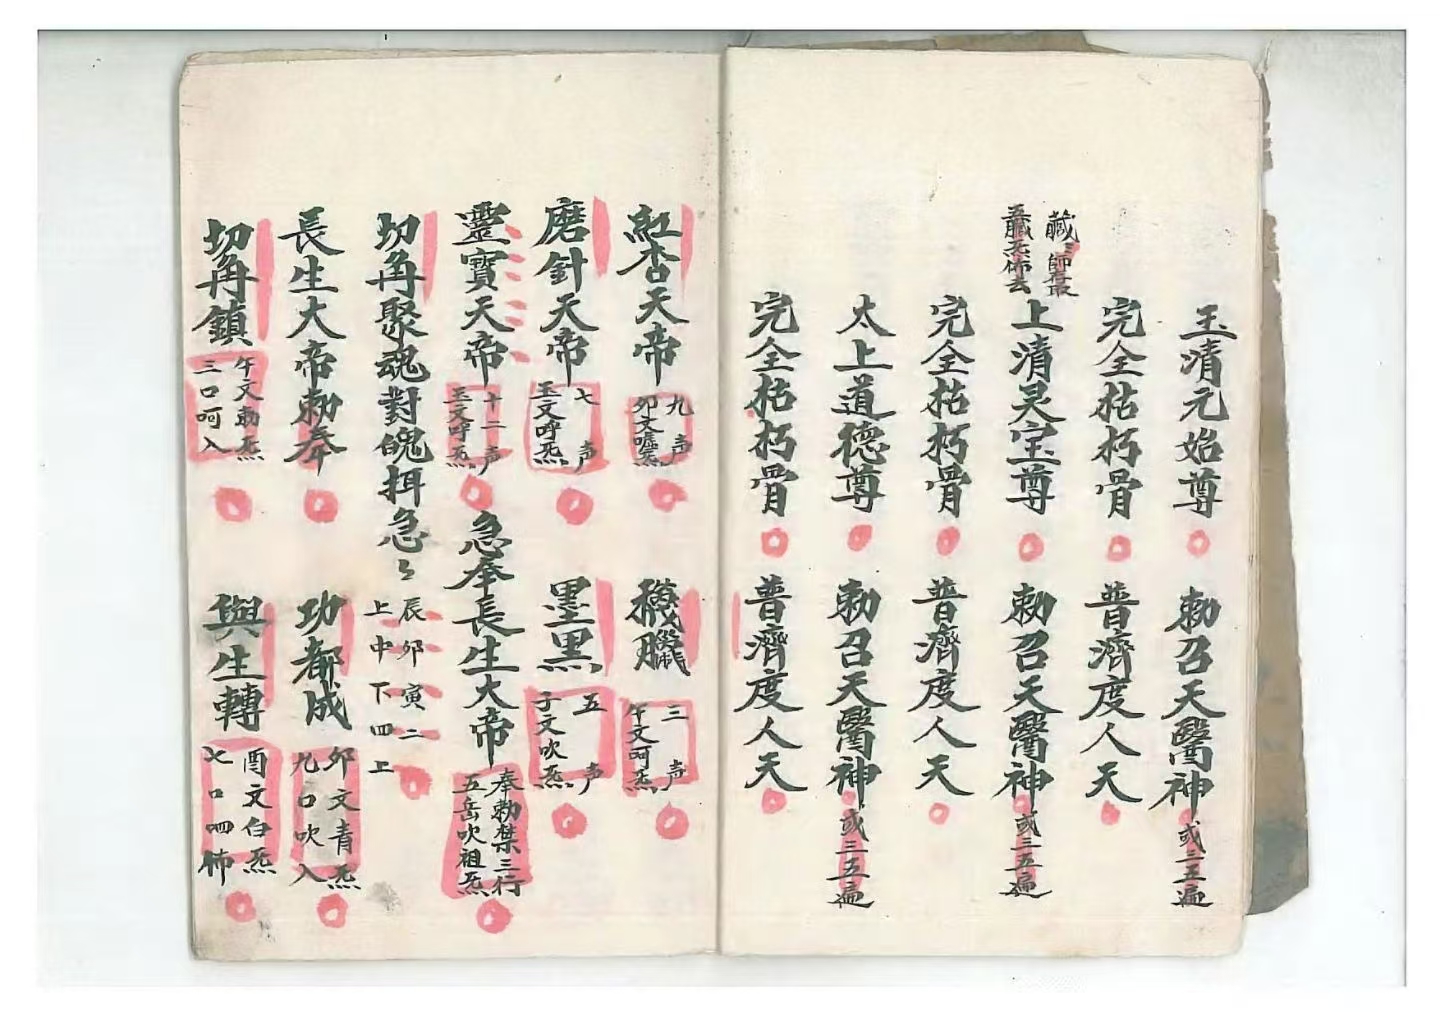 玉清元始尊 勅召天醫神 或三五遍
完全枯朽骨 普濟度人天
藏 師
上清灵宝尊 勅召天醫神 或三五遍
完全枯朽骨 普濟度人天
太上道德尊 勅召天醫神 或三五遍
完全枯朽骨 普濟度人天
紅杏天帝 九声 卯文噓炁 三声 午文呵炁
磨針天帝 七声 玉文呼炁 墨黑 五声 子文吹炁
靈寶天帝 十二声 玉文呼炁 急奉長生大帝 奉勅禁三行 五岳吹祖炁
切角聚魂對魄 急〻 辰卯寅二 上中下四上
長生大帝勅奉 功都成 卯文青炁 九口吹入
切角鎮 午文勅炁 三口呵入 與生轉 酉文白炁 七口呬怖